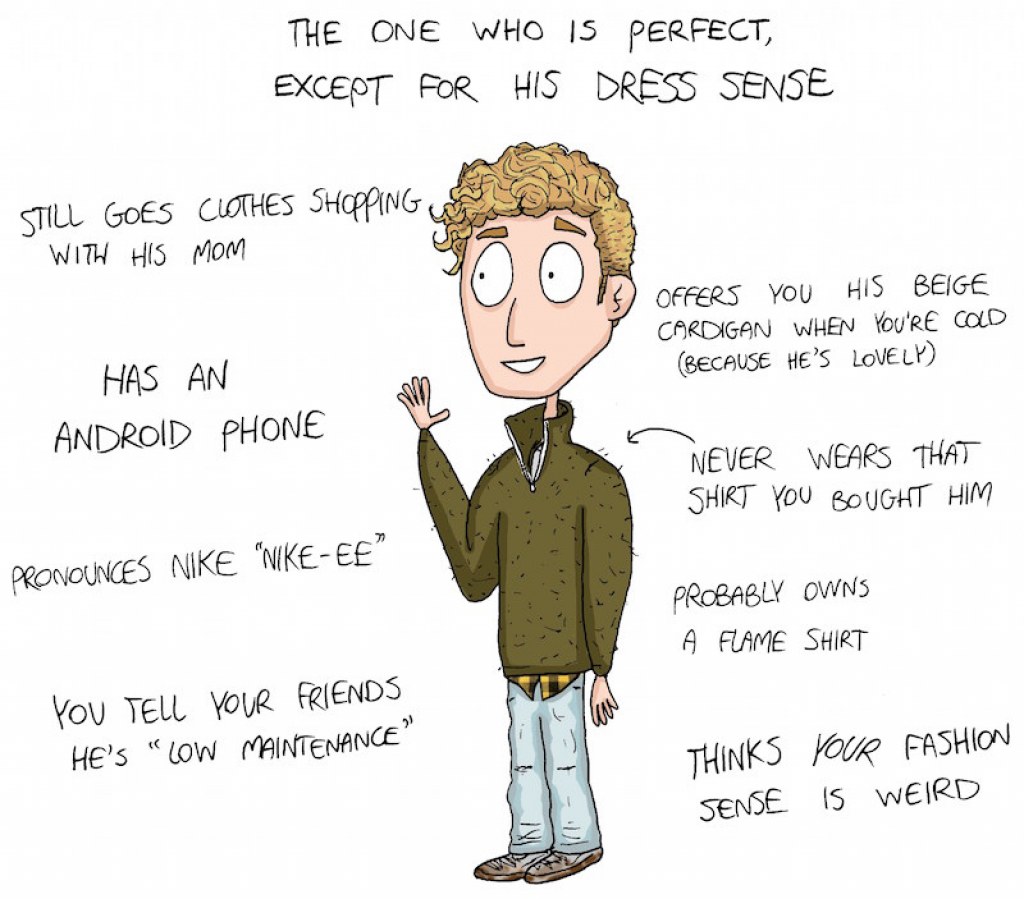 THE ONE WHO IS PERFECT,
EXCEPT FOR HIS DRESS SENSE
STILL GOES CLOTHES SHOPPING
WITH HIS MOM
OFFERS YOU HIS BEIGE
CARDIGAN WHEN YOU'RE COLD
(BECAUSE HE'S LOVELY)
HAS AN
ANDROID PHONE
NEVER WEARS THAT
SHIRT YOU BOUGHT HIM
PRONOUNCES NIKE "NIKE-EE"
PROBABLY OWNS
A FLAME SHIRT
YOU TELL YOUR FRIENDS
HE'S "LOW MAINTENANCE"
THINKS YOUR FASHION
SENSE IS WEIRD